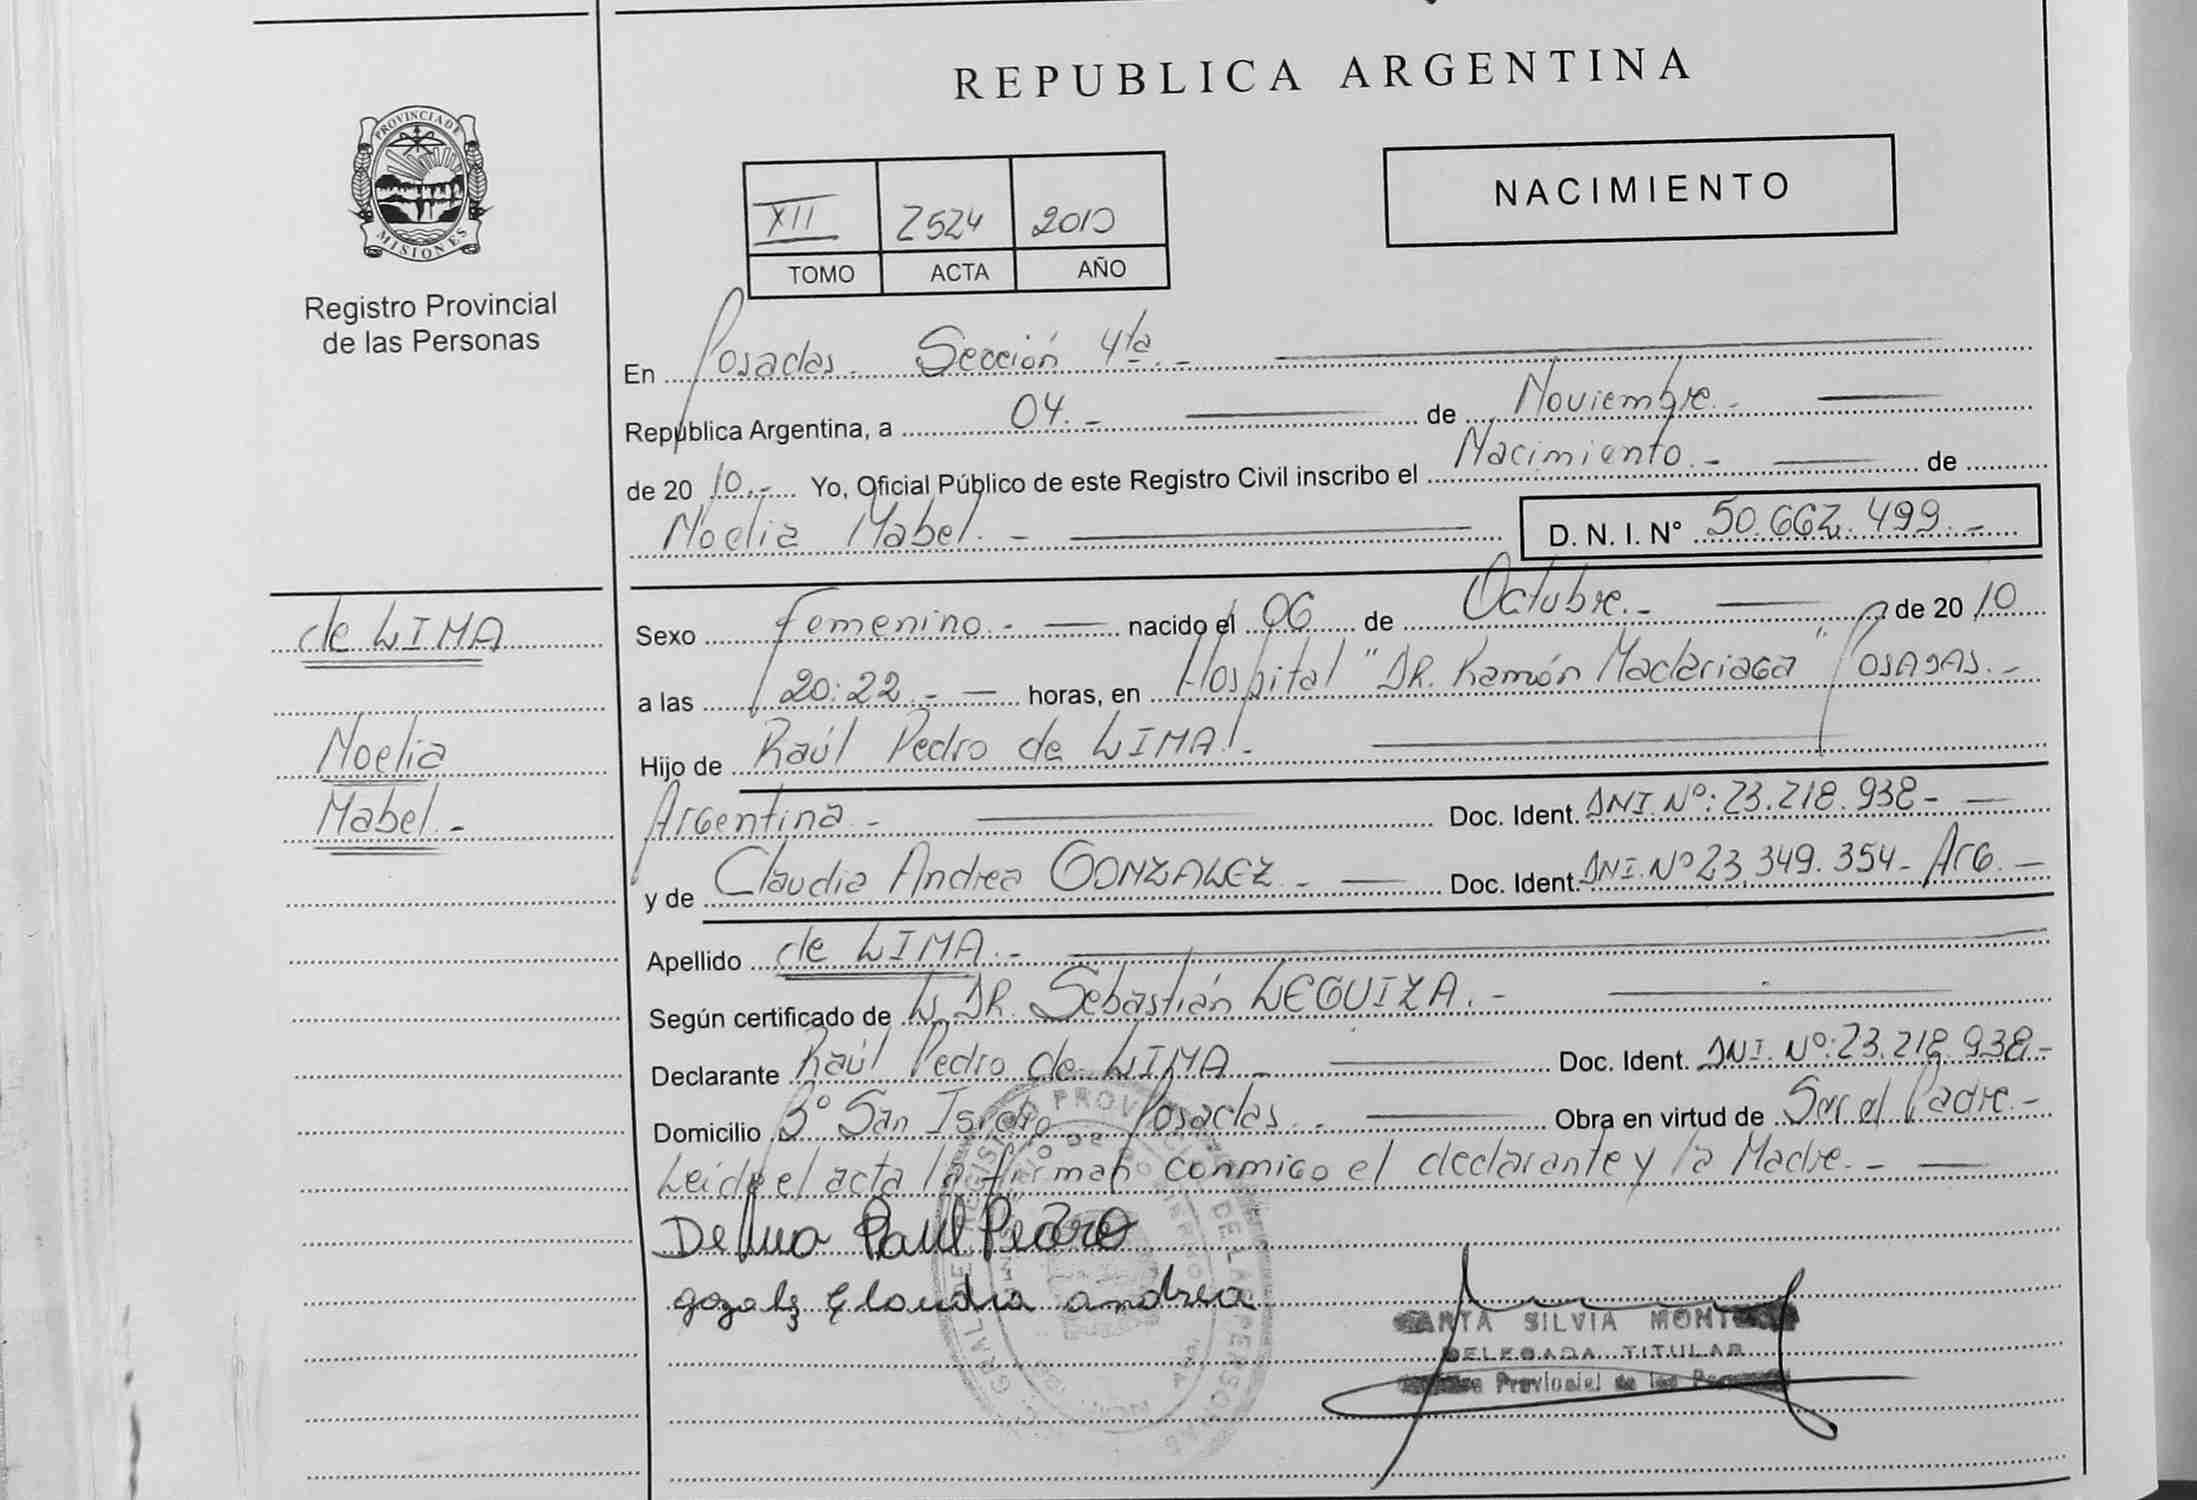 REPUBLICA ARGENTINA
NACIMIENTO
XII 2524 2010
TOMO ACTA AÑO
PROVINCIA DE
MISIONES
Registro Provincial
de las Personas
En Posadas. Sección 4ta.-
Republica Argentina, a 04.- de Noviembre.-
de 20 10.- Yo, Oficial Público de este Registro Civil inscribo el Nacimiento.- de
Noelia Mabel.- D. N. I. N° 50.662.499.-
de LIMA
Noelia
Mabel.-
Sexo Femenino.- nacido el 06 de Octubre.- de 20 10
a las 20:22.- horas, en Hospital "DR. Ramón Madariaga" POSADAS.-
Hijo de Raúl Pedro de LIMA.-
Argentina.- Doc. Ident. DNI. Nº: 23.218.938-
y de Claudia Andrea GONZALEZ.- Doc. Ident. DNI. Nº 23.349.354- Arg.-
Apellido de LIMA.-
Según certificado de L. DR. Sebastián LEGUIZA.-
Declarante Raúl Pedro de LIMA- Doc. Ident. DNI. Nº: 23.218.938.-
Domicilio Bº San Isidro Posadas.- Obra en virtud de Ser el Padre.-
Leída el acta la firman conmigo el declarante y la Madre.-
De lima Raul Pedro
Claudia andrea
SILVIA
DELEGADA TITULAR
Provincial de las